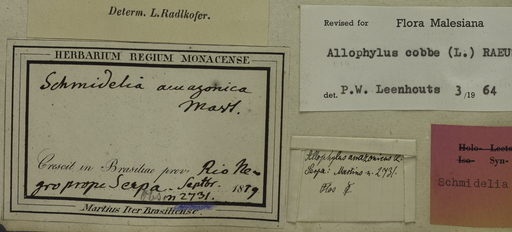 Determ. L. Radlkofer.
HERBARIUM REGIUM MONACENSE
Schmidelia amazonica
Mart.
Crescit in Brasiliae prov. Rio Ne-
gro prope Serpa. Septbr. 1819
n 2731.
Martius Iter Brasiliense.
Revised for Flora Malesiana
Allophylus cobbe (L.) RAEU
det. P.W. Leenhouts 3/19 64
Allophylus amazonicus
Serpa: Martius n. 2731.
Flos
Holo- Lecto
Iso- Syn-
Schmidelia